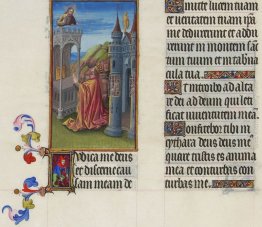 Iudica me deus
et discerne cau
sam meam de
Emitte lucem tuam
et veritatem tuam ipsa
me deduxerunt et addu
xerunt in montem sanc
tum tuum et in taberna
cula tua
Et introibo ad alta
re dei ad deum qui leti
ficat iuventutem meam
Confitebor tibi in
cythara deus deus meus
quare tristis es anima
mea et conturbas con
turbas me